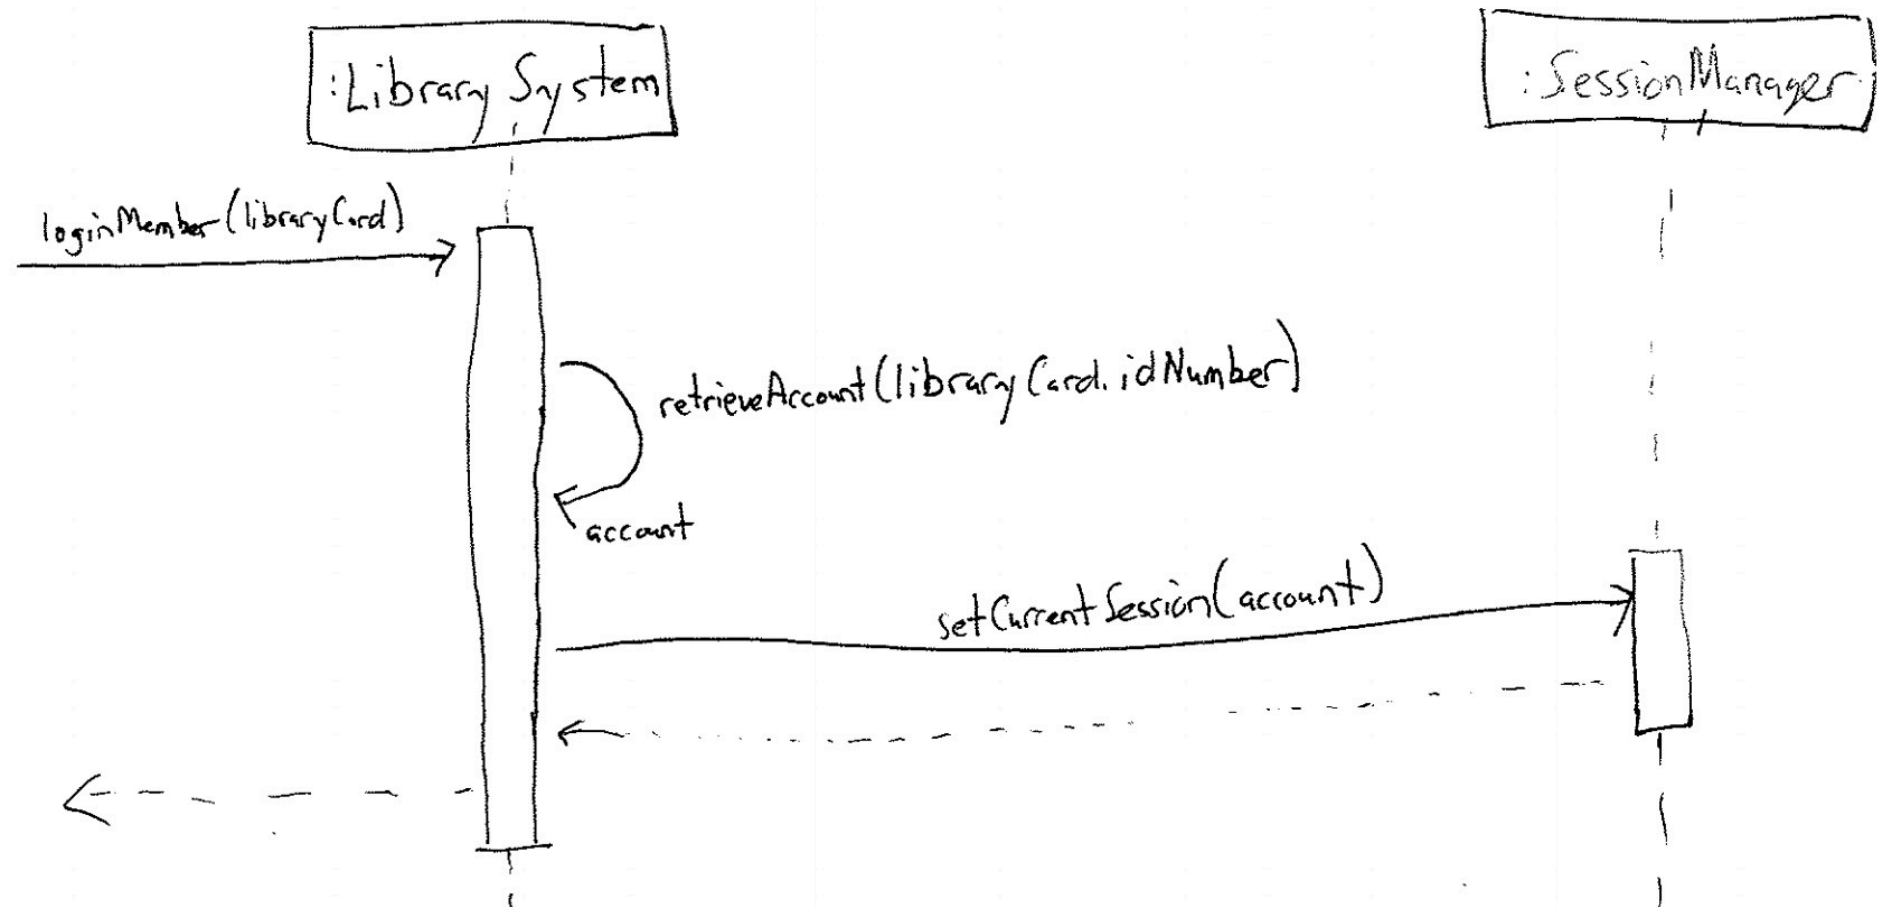 :Library System
:SessionManager
loginMember(libraryCard)
retrieveAccount(libraryCard.idNumber)
account
setCurrentSession(account)